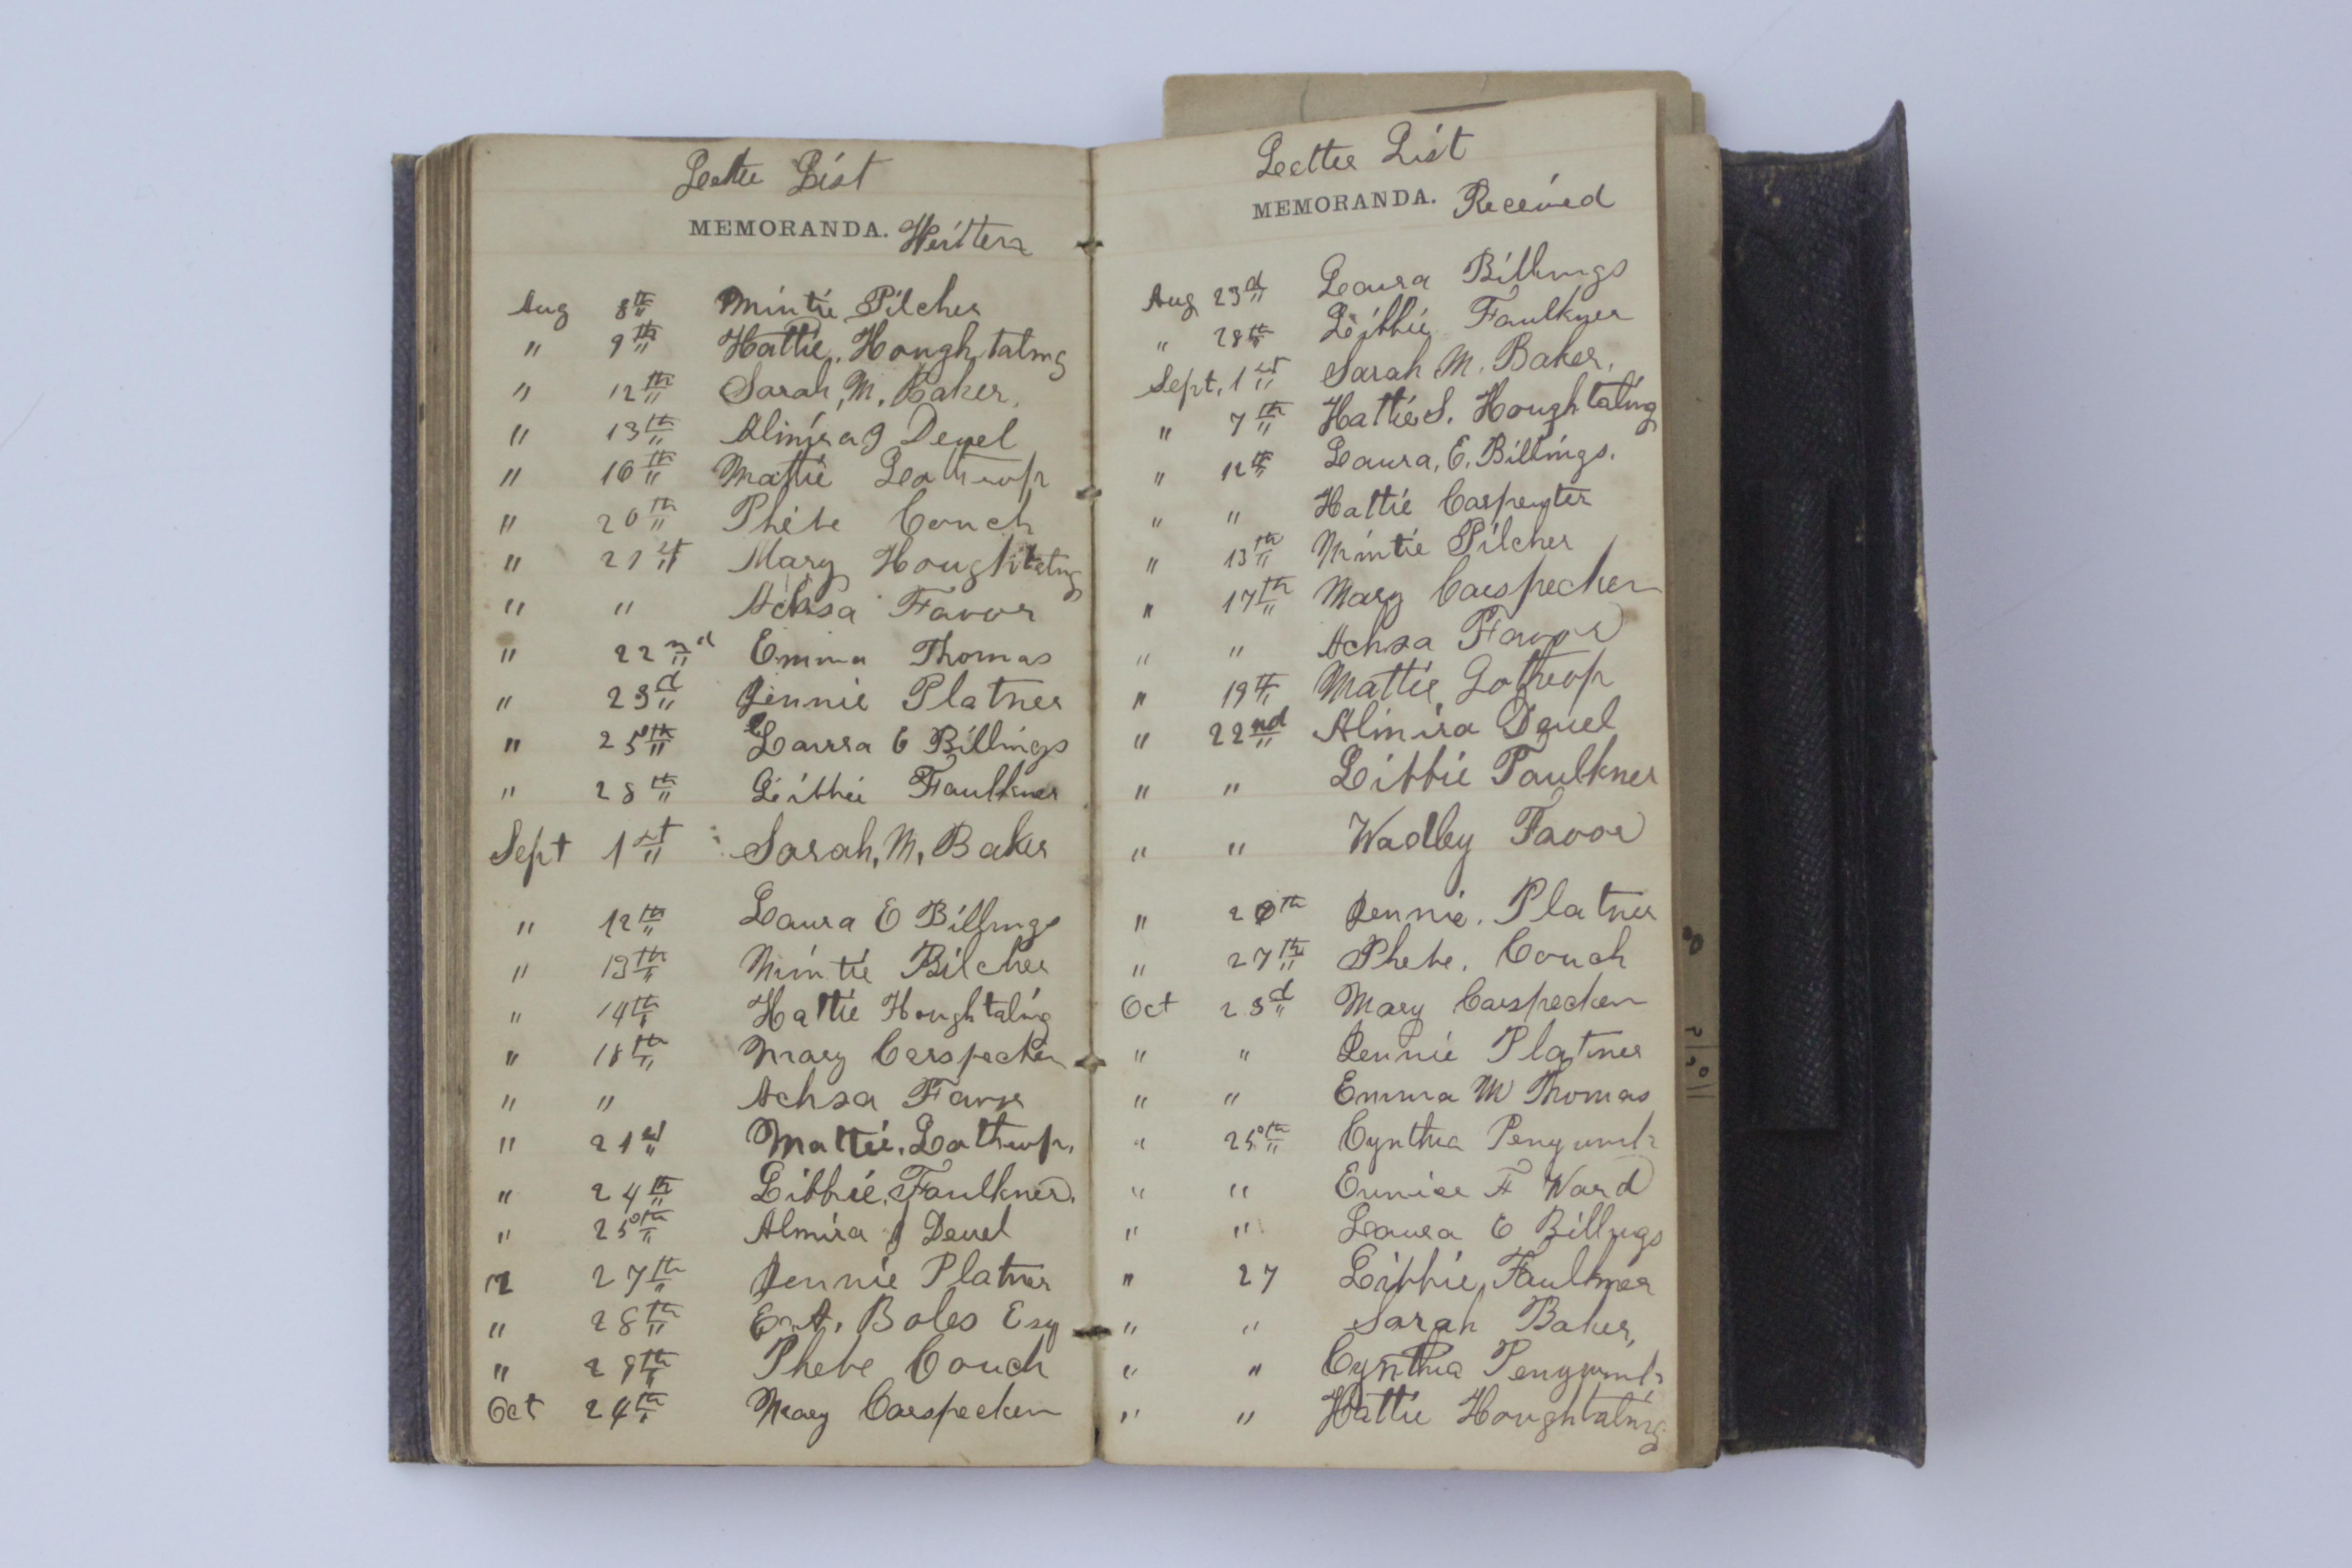 Letter List
MEMORANDA. Written
Aug 8th Mintie Pilcher
" 9th Hattie. Houghtaling
" 12th Sarah, M. Baker.
" 13th Almira J Deuel
" 16th Mattie Lothrop
" 20th Phebe Couch
" 21st Mary Houghtaling
" " Achsa Favor
" 22nd Emma Thomas
" 23d Jennie Platner
" 25th Laura E Billings
" 28th Libbie Faulkner
Sept 1st Sarah, M, Baker
" 12th Laura E Billings
" 13th Mintie Pilcher
" 14th Hattie Houghtaling
" 18th Mary Carspecken
" " Achsa Favor
" 21st Mattie. Lothrop.
" 24th Libbie. Faulkner.
" 25th Almira J Deuel
" 27th Jennie Platner
" 28th Boles Esq
" 29th Phebe Couch
Oct 24th Mary Carspecken
Letter List
MEMORANDA. Received
Aug 23d Laura Billings
" 28th Libbie Faulkner
Sept, 1st Sarah M. Baker,
" 7th Hattie S. Houghtaling
" 12th Laura, E. Billings.
" " Hattie Carpenter
" 13th Mintie Pilcher
" 17th Mary Carspecken
" " Achsa Favor
" 19th Mattie Lothrop
" 22nd Almira Deuel
" " Libbie Faulkner
" " Wadley Favor
" Jennie. Platner
" 27th Phebe. Couch
Oct 23d Mary Carspecken
" " Jennie Platner
" " Emma M Thomas
" 25th Cynthia
" " Eunice A Ward
" " Laura E Billings
" 27 Libbie Faulkner
" " Sarah Baker,
" " Cynthia
" " Hattie Houghtaling